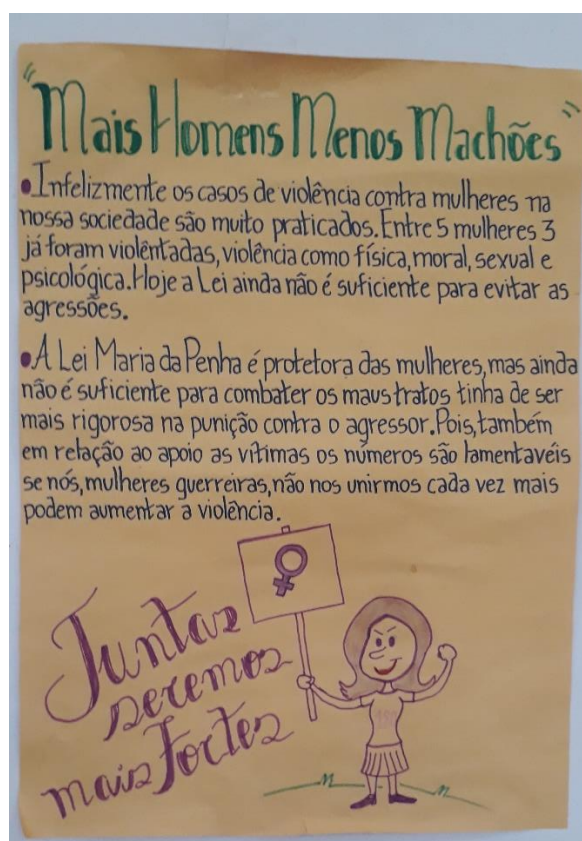 "Mais Homens Menos Machões"
•Infelizmente os casos de violência contra mulheres na
nossa sociedade são muito praticados. Entre 5 mulheres 3
já foram violêntadas, violência como física, moral, sexual e
psicológica. Hoje a Lei ainda não é suficiente para evitar as
agressões.
•A Lei Maria da Penha é protetora das mulheres, mas ainda
não é suficiente para combater os maus tratos tinha de ser
mais rigorosa na punição contra o agressor. Pois, também
em relação ao apoio as vítimas os números são lamentavéis
se nós, mulheres guerreiras, não nos unirmos cada vez mais
podem aumentar a violência.
Juntas
seremos
mais Fortes